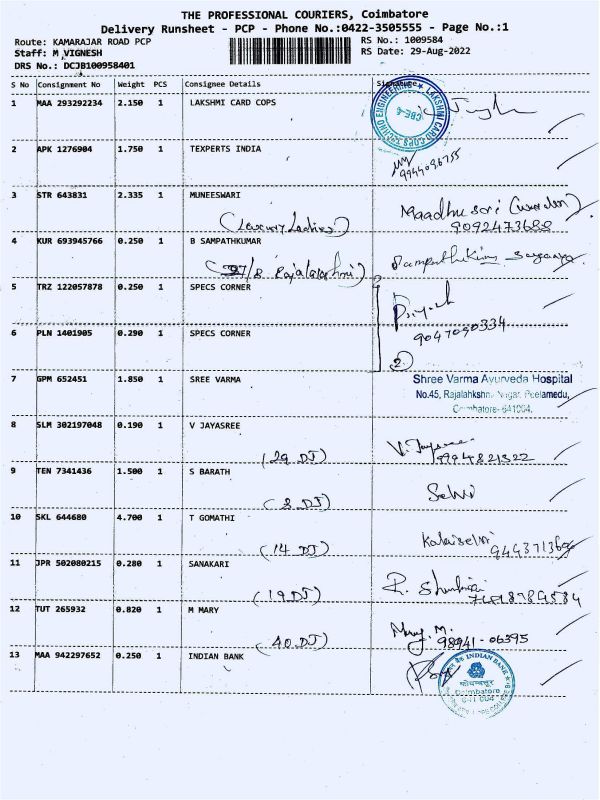 THE PROFESSIONAL COURIERS, Coimbatore
Delivery Runsheet - PCP - Phone No.:0422-3505555 - Page No.:1
Route: KAMARAJAR ROAD PCP
RS No.: 1009584
Staff: M VIGNESH
RS Date: 29-Aug-2022
DRS No.: DCJB100958401
S No Consignment No Weight PCS Consignee Details Signature
1 MAA 293292234 2.150 1 LAKSHMI CARD COPS
LAKSHMI CARD COPS
ENGINEERING
CBE-4
2 APK 1276904 1.750 1 TEXPERTS INDIA
9944096755
3 STR 643831 2.335 1 MUNEESWARI
(Luxury Ladies)
Maadhu sori (warden)
9092473688
4 KUR 693945766 0.250 1 B SAMPATHKUMAR
/8 Rajalakshmi)
5 TRZ 122057878 0.250 1 SPECS CORNER
6 PLN 1401905 0.290 1 SPECS CORNER
9047090334
2
7 GPM 652451 1.850 1 SREE VARMA
Shree Varma Ayurveda Hospital
No.45, Rajalahkshmi Nagar, Peelamedu,
Coimbatore-641004.
8 SLM 302197048 0.190 1 V JAYASREE
(29 DJ)
V. Jayasree
9994821322
9 TEN 7341436 1.500 1 S BARATH
(8 DJ)
Selvi
10 SKL 644680 4.700 1 T GOMATHI
(14 DJ)
Kalaiselvi
11 JPR 502080215 0.280 1 SANAKARI
(19 DJ)
12 TUT 265932 0.820 1 M MARY
(40 DJ)
Mary. M.
98941-06395
13 MAA 942297652 0.250 1 INDIAN BANK
INDIAN BANK
कोयम्बत्तूर
Coimbatore
641 004